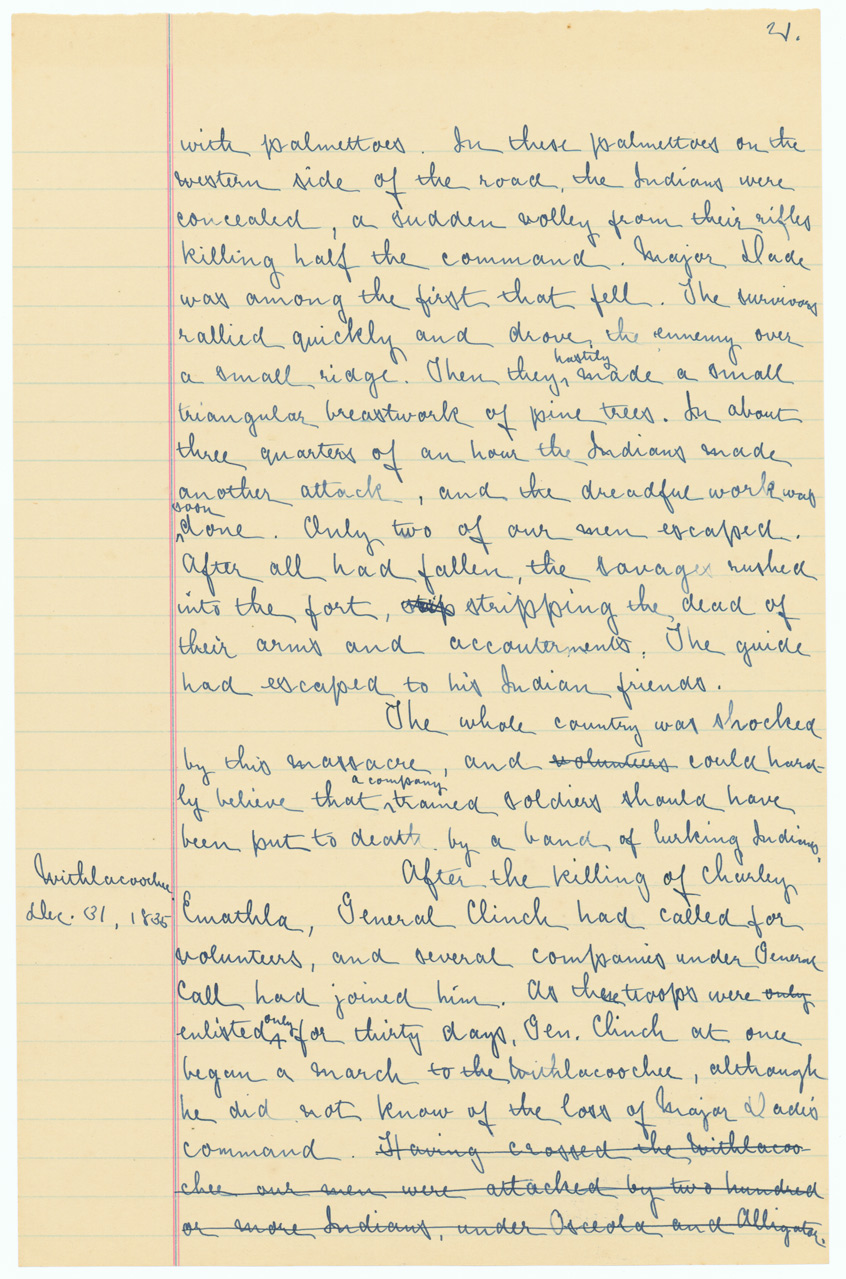 21.
with palmettoes. In these palmettoes on the
western side of the road, the Indians were
concealed, a sudden volley from their rifles
killing half the command. Major Dade
was among the first that fell. The survivors
rallied quickly and drove the ennemy over
hastily
a small ridge. Then they made a small
triangular breastwork of pine trees. In about
three quarters of an hour the Indians made
another attack, and the dreadful work was
soon
done. Only two of our men escaped.
After all had fallen, the savages rushed
into the fort, strip stripping the dead of
their arms and accouterments. The guide
had escaped to his Indian friends.
The whole country was shocked
by this massacre, and volunteers could hard-
a company
ly believe that trained soldiers should have
been put to death by a band of lurking Indians.
Withlacoochee.
After the killing of Charley
Dec. 31, 1835
Emathla, General Clinch had called for
volunteers, and several companies under General
Call had joined him. As these troops were only
only
enlisted for thirty days, Gen. Clinch at once
began a march to the Withlacoochee, although
he did not know of the loss of Major Dade's
command. Having crossed the Withlacoo-
chee our men were attacked by two hundred
or more Indians, under Osceola and Alligator.